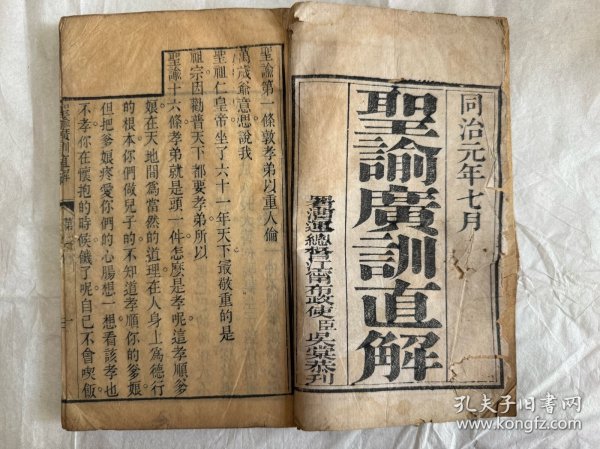 同治元年七月
聖諭廣訓直解
署漕運總督江甯布政使臣吳棠恭刊
聖諭第一條敦孝弟以重人倫
萬歲爺意思說我
聖祖仁皇帝坐了六十一年天下最敬重的是
祖宗因勸普天下都要孝弟所以
聖諭十六條孝弟就是頭一件怎麼是孝呢這孝順爹
娘在天地間為當然的道理在人身上為德行
的根本你們做兒子的不知道孝順你的爹娘
但把爹娘疼愛你們的心腸想一想看該孝也
不孝你在懷抱的時候餓了呢自己不會喫飯
聖諭廣訓直解
第一
孔夫子旧书网
www.kongfz.com